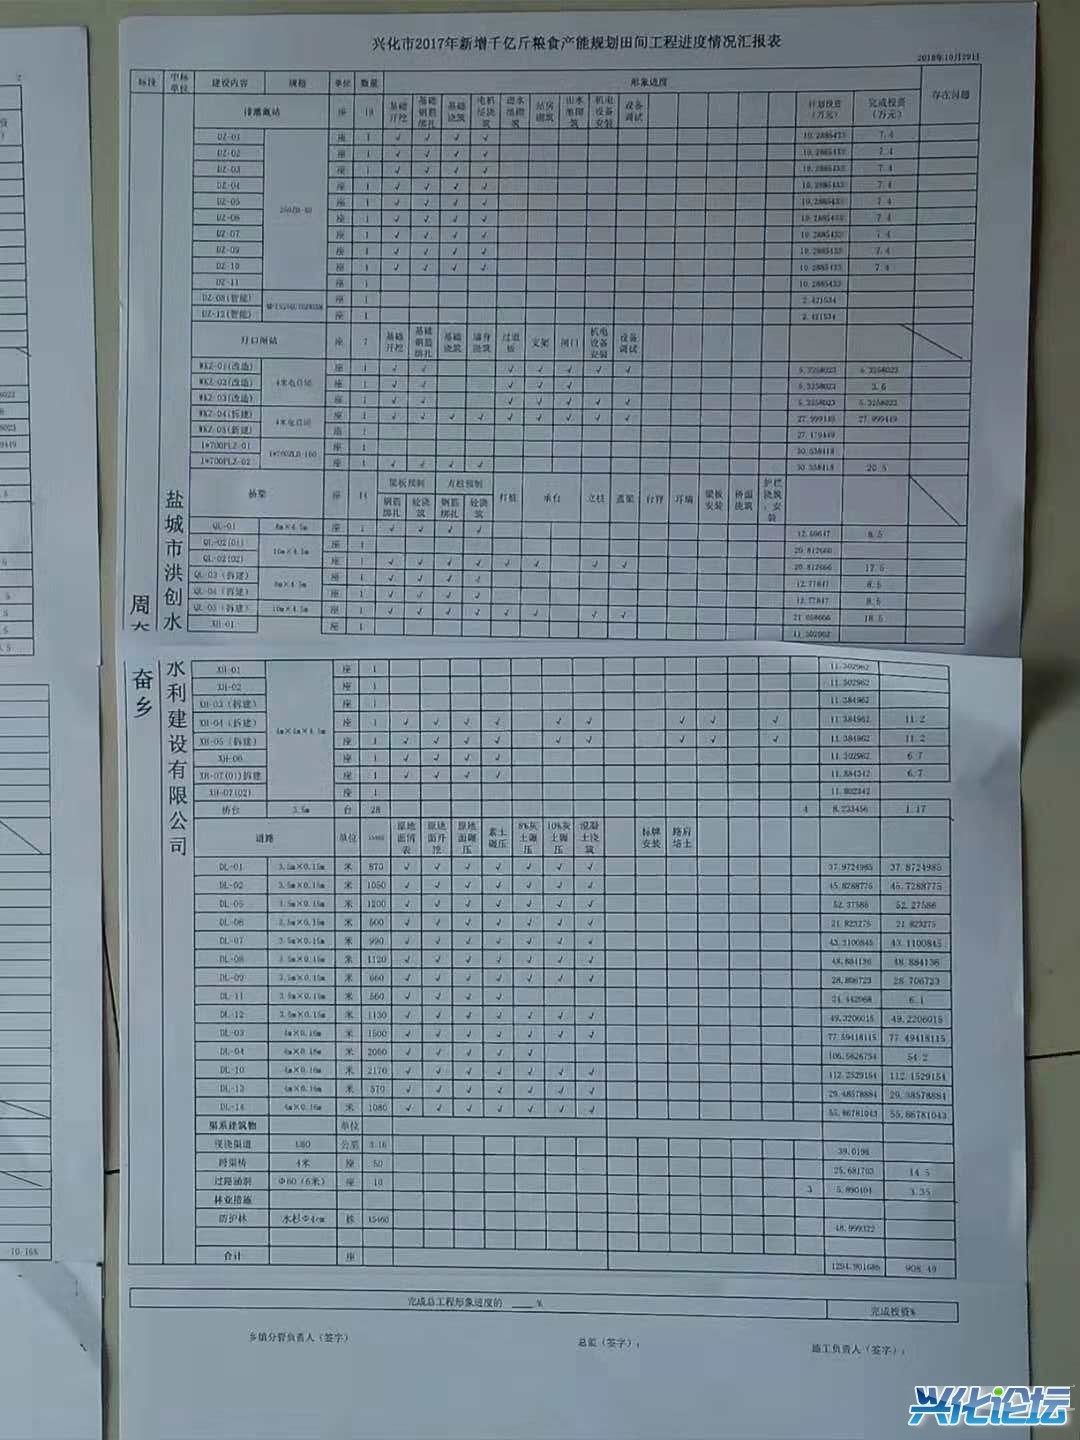 兴化市2017年新增千亿斤粮食产能规划田间工程进度情况汇报表
2018年10月29日
标段 中标单位 建设内容 规格 单位 数量 形象进度 计划投资（万元） 完成投资（万元） 存在问题
周奋乡
盐城市洪创水利建设有限公司
排灌站 座 19 基础开挖 基础钢筋绑扎 基础浇筑 机电设备安装 设备调试
DZ-01 座 1 √ √ √ √ 10.2885433 7.4
DZ-02 座 1 √ √ √ √ 10.2885433 7.4
DZ-03 座 1 √ √ √ √ 10.2885433 7.4
DZ-04 座 1 √ √ √ √ 10.2885433 7.4
DZ-05 座 1 √ √ √ √ 10.2885433 7.4
DZ-06 座 1 √ √ √ √ 10.2885433 7.4
DZ-07 座 1 √ √ √ √ 10.2885433 7.4
DZ-09 座 1 √ √ √ √ 10.2885433 7.4
DZ-10 座 1 √ √ √ √ 10.2885433 7.4
DZ-11 座 1 10.2885433
DZ-08(智能) 座 1 2.421534
DZ-12(智能) 座 1 2.421534
圩口闸站 座 7 基础开挖 基础钢筋绑扎 基础浇筑 墙身浇筑 过道板 支架 闸门 机电设备安装 设备调试
WKZ-01(改造) 座 1 √ √ √ √ √ √ √ 5.3258023 5.3258023
WKZ-02(改造) 座 1 √ √ √ √ √ 5.3258023 3.6
WKZ-03(改造) 座 1 √ √ √ √ √ √ √ 5.3258023 5.3258023
WKZ-04(拆建) 座 1 √ √ √ √ √ √ √ √ √ 27.999449 27.999449
WKZ-05(新建) 1 27.479449
1*700PLZ-01 1*700ZLB-160 座 1 30.538418
1*700PLZ-02 座 1 √ √ √ √ 30.538418 20.5
桥梁 座 14 梁板预制 方桩预制 打桩 承台 立柱 盖梁 台背 耳墙 梁板安装 桥面浇筑 护栏浇筑、安装
钢筋绑扎 砼浇筑 钢筋绑扎 砼浇筑
QL-01 8m×4.5m 座 1 √ √ √ √ 12.69647 8.5
QL-02(01) 10m×4.5m 座 1 20.812666
QL-02(02) 座 1 √ √ √ √ √ √ √ √ 20.812666 17.5
QL-03（拆建） 8m×4.5m 座 1 √ √ √ √ 12.77847 8.5
QL-04（拆建） 座 1 √ √ √ √ 12.77847 8.5
QL-05（拆建） 10m×4.5m 座 1 √ √ √ √ √ √ √ √ 21.058666 18.5
XH-01 座 1 11.302962
XH-01 座 1 11.302962
XH-02 座 1 11.302962
XH-03（拆建） 座 1 11.384962
XH-04（拆建） 座 1 √ √ √ √ √ √ √ √ √ 11.384962 11.2
XH-05（拆建） 座 1 √ √ √ √ √ √ √ √ √ 11.384962 11.2
XH-06 座 1 √ √ √ √ 11.302962 6.7
XH-07(01)拆建 座 1 √ √ √ √ 11.884342 6.7
XH-07(02) 座 1 11.802342
桥台 3.5m 台 28 4 8.233456 1.17
道路 单位 原地面清表 原地面开挖 原地面碾压 素土碾压 8%灰土碾压 10%灰土碾压 混凝土浇筑 标牌安装 路肩培土
DL-01 3.5m×0.15m 米 870 √ √ √ √ √ √ √ 37.9724985 37.8724985
DL-02 3.5m×0.15m 米 1050 √ √ √ √ √ √ √ 45.8288775 45.7288775
DL-05 3.5m×0.15m 米 1200 √ √ √ √ √ √ √ 52.37586 52.27586
DL-06 3.5m×0.15m 米 500 √ √ √ √ √ √ √ 21.823275 21.823275
DL-07 3.5m×0.15m 米 990 √ √ √ √ √ √ √ 43.2100845 43.1100845
DL-08 3.5m×0.15m 米 1120 √ √ √ √ √ √ √ 48.884136 48.884136
DL-09 3.5m×0.15m 米 660 √ √ √ √ √ √ √ 28.806723 28.706723
DL-11 3.5m×0.15m 米 560 √ √ √ √ 24.442068 6.1
DL-12 3.5m×0.15m 米 1130 √ √ √ √ √ √ √ 49.3206015 49.2206015
DL-03 4m×0.16m 米 1500 √ √ √ √ √ √ √ 77.59418115 77.49418115
DL-04 4m×0.16m 米 2060 √ √ √ √ √ 54.2
DL-10 4m×0.16m 米 2170 √ √ √ √ √ √ √ 112.2529154 112.1529154
DL-13 4m×0.16m 米 570 √ √ √ √ √ √ √ 29.48578884 29.38578884
DL-14 4m×0.16m 米 1080 √ √ √ √ √ √ √ 55.86781043 55.86781043
渠系建筑物 单位
现浇渠道 U80 公里 3.16 39.0196
跨渠桥 4米 座 50 25.681703 14.5
过路涵洞 Φ60（6米） 座 10 3 5.890101 3.35
林业措施
防护林 水杉Φ4cm 株 15460 48.999322
合计 座 1294.901686 908.49
完成总工程形象进度的 ____ % 完成投资%
乡镇分管负责人（签字） 总监（签字）： 施工负责人（签字）：
10.168
兴化论坛